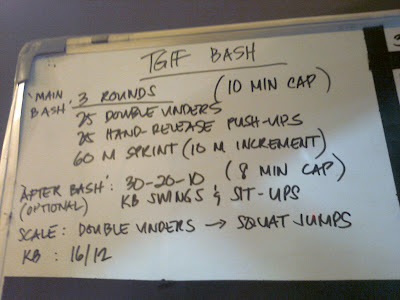 TGIF BASH
'MAIN BASH': 3 ROUNDS (10 MIN CAP)
25 DOUBLE UNDERS
25 HAND-RELEASE PUSH-UPS
60 M SPRINT (10 M INCREMENT)
'AFTER BASH': 30-20-10 (8 MIN CAP)
(OPTIONAL) KB SWINGS & SIT-UPS
SCALE: DOUBLE UNDERS → SQUAT JUMPS
KB : 16/12
3